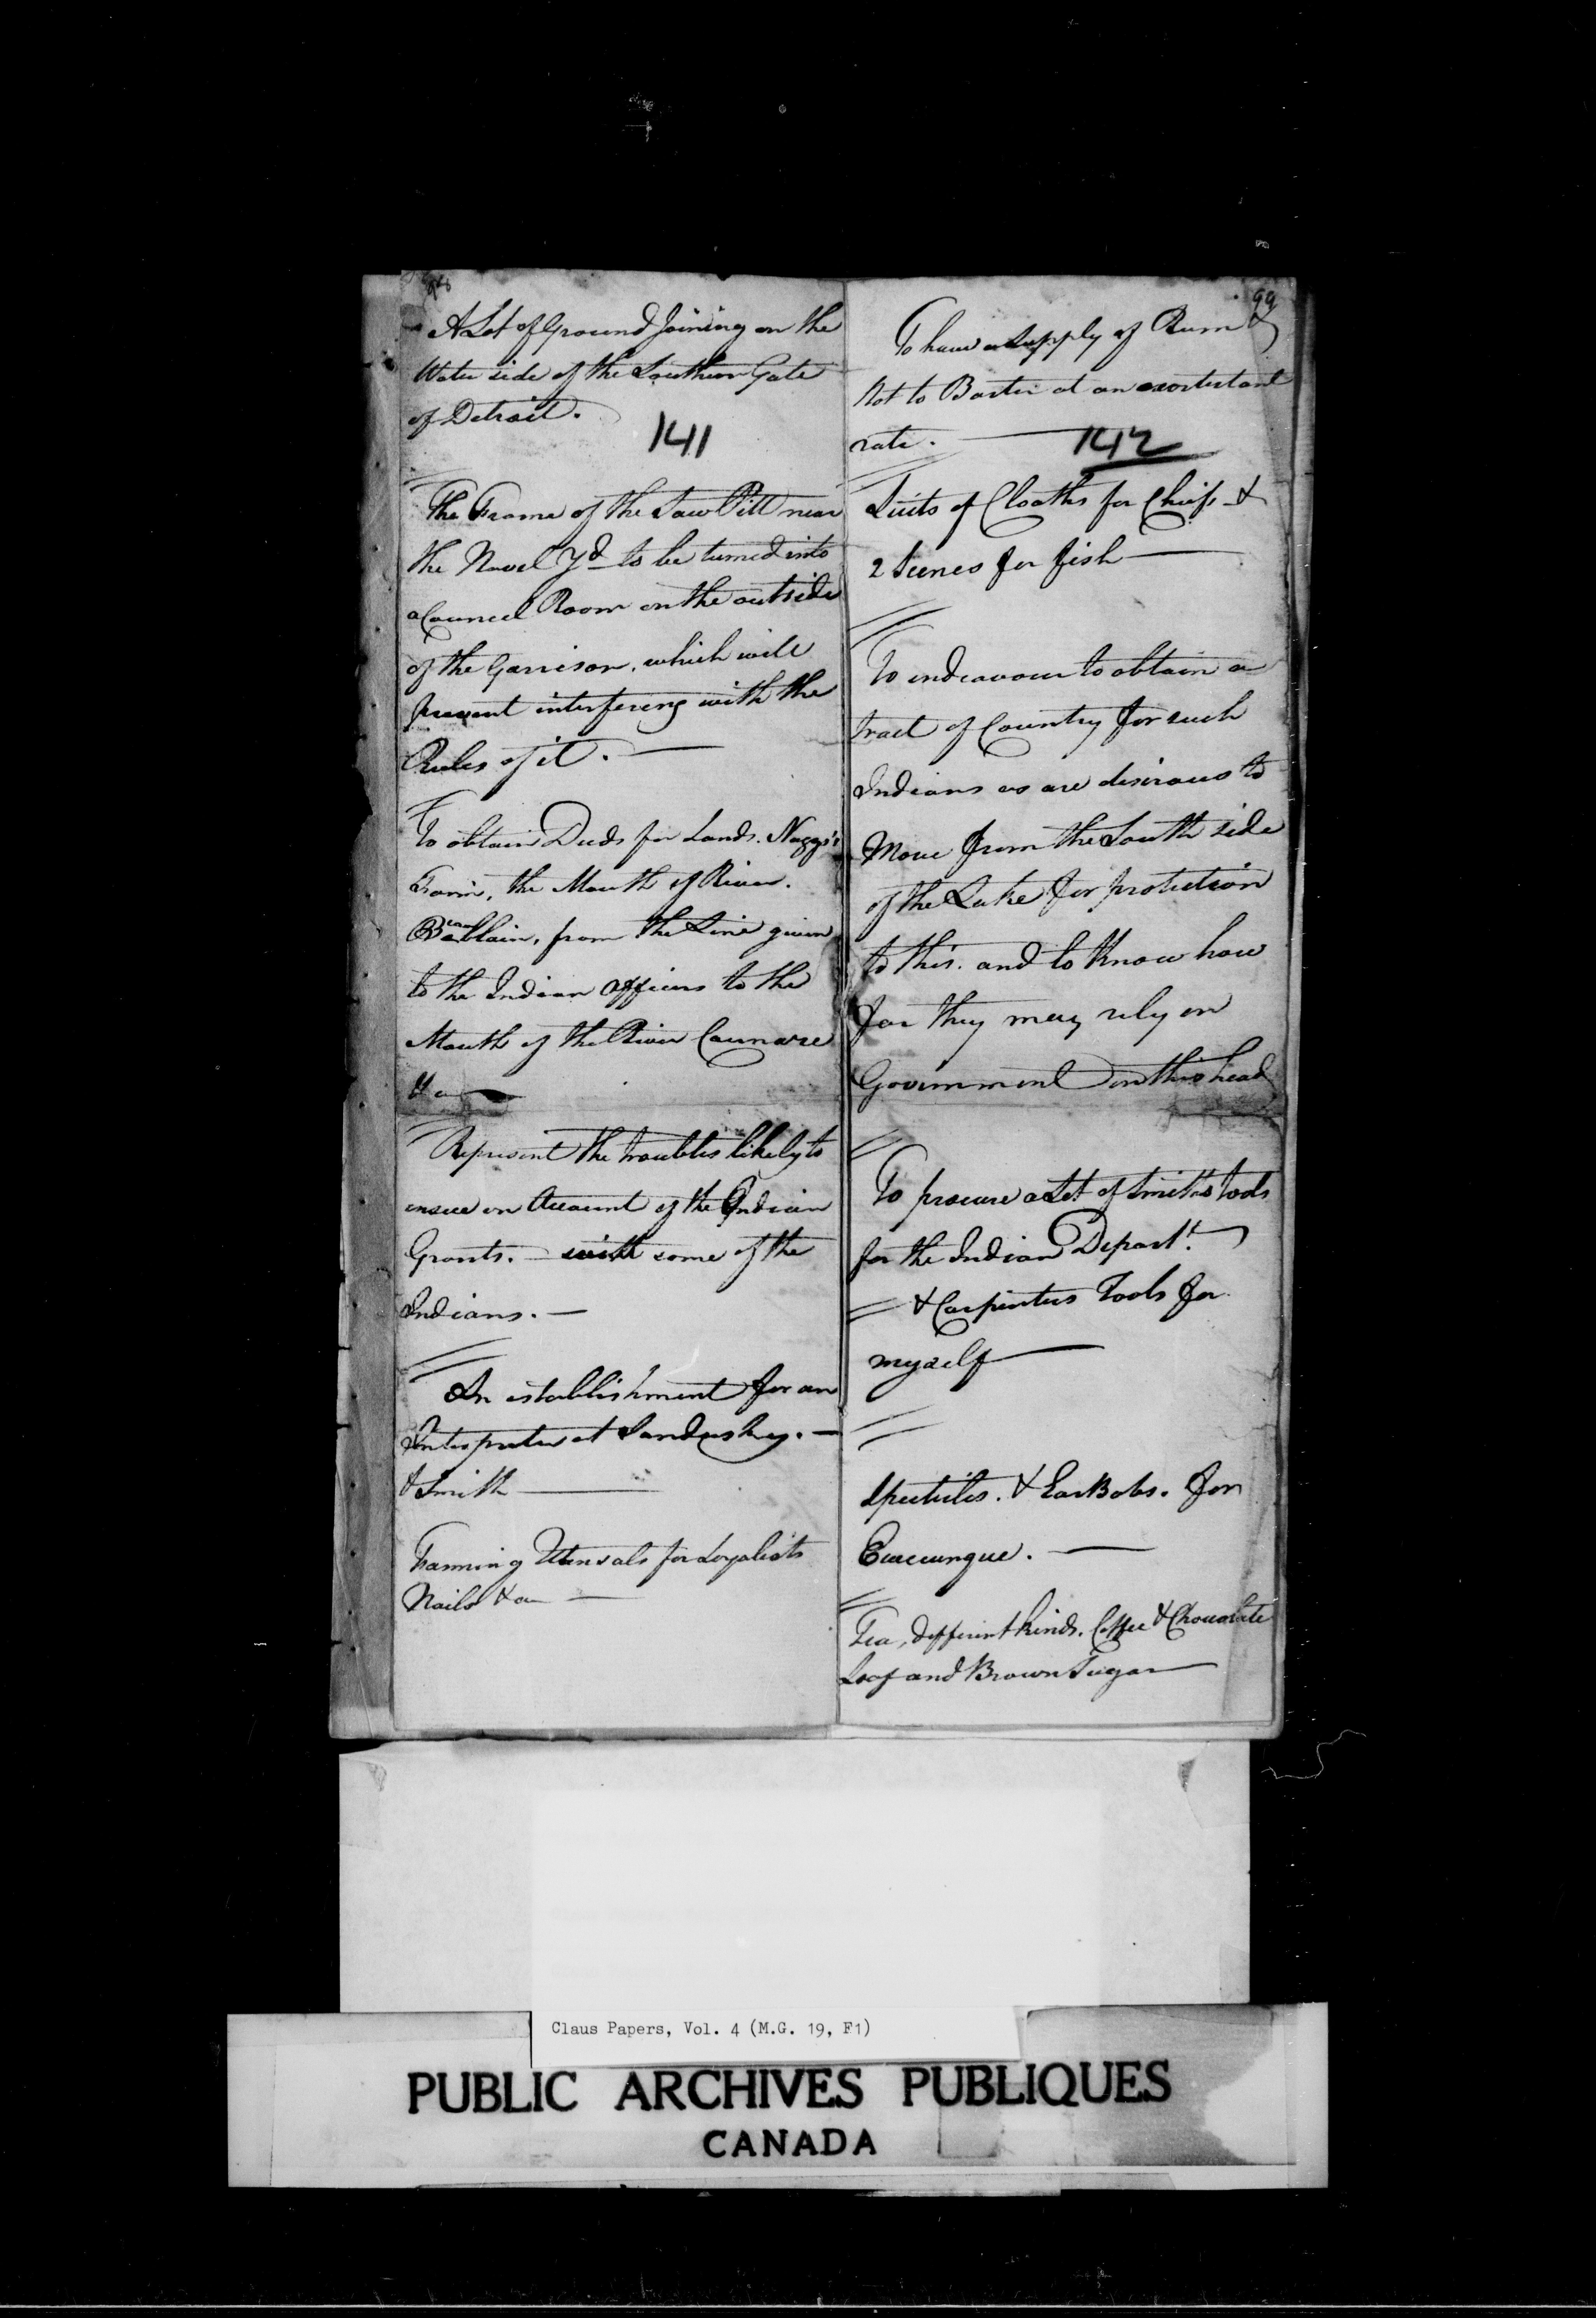 98
A Lot of Ground Joining on the
Water side of the Southern Gate
of Detroit.
141
The Frame of the Saw Pitt near
the Navel Yd to be turned into
a Councel Room on the outside
of the Garrison, which will
prevent interfering with the
Rules of it.
To obtain Deeds for Lands.
Farm, the Mouth of River.
from the Line given
to the Indian officers to the
Mouth of the River Cannare
&a
Represent the troubles likely to
ensue on Account of the Indian
Grants. with some of the
Indians.
An establishment for an
Interpreter at Sandusky.
& Smith
Farming Utensals for Loyalists
Nails &a
99
To have a supply of Rum &
Not to Barter at an exortertant
rate.
142
Suits of Cloaths for Chiefs &
2 Seenes for fish
To endeavour to obtain a
tract of Country for such
Indians as are desirous to
Move from the South side
of the Lake for protection
to this. and to Know how
far they may rely on
Government on this head
To procure a Set of Smith's tools
for the Indian Depart.t
& Carpenters Tools for
myself
Spectiles. & EarBobs. for
Tea, different kinds. Coffee & Chocolate
Loaf and Brown Sugar
Claus Papers, Vol. 4 (M.G. 19, F1)
PUBLIC ARCHIVES PUBLIQUES
CANADA